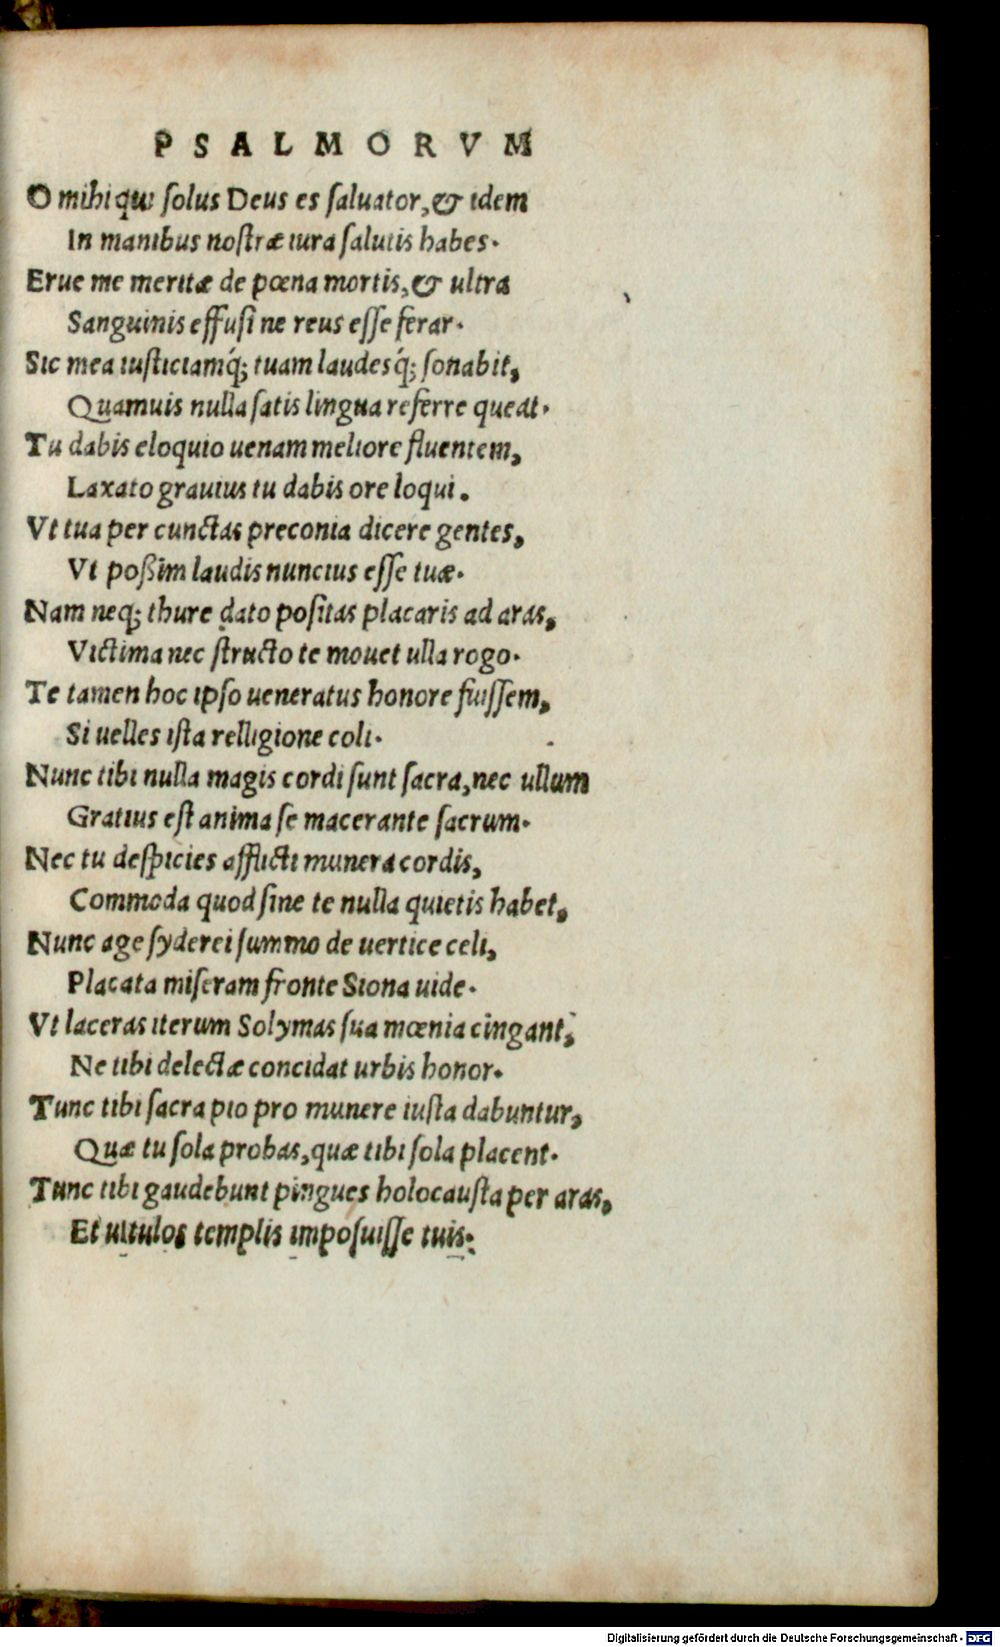 PSALMORVM
O mihi qui solus Deus es saluator, & idem
In manibus nostræ iura salutis habes.
Erue me meritæ de pœna mortis, & ultra
Sanguinis effusi ne reus esse ferar.
Sic mea iusticiamq́; tuam laudesq́; sonabit,
Quamuis nulla satis lingua referre queat.
Tu dabis eloquio uenam meliore fluentem,
Laxato grauius tu dabis ore loqui.
Vt tua per cunctas preconia dicere gentes,
Vt poßim laudis nuncius esse tuæ.
Nam neq; thure dato positas placaris ad aras,
Victima nec structo te mouet ulla rogo.
Te tamen hoc ipso ueneratus honore fuissem,
Si uelles ista relligione coli.
Nunc tibi nulla magis cordi sunt sacra, nec ullum
Gratius est anima se macerante sacrum.
Nec tu despicies afflicti munera cordis,
Commoda quod sine te nulla quietis habet,
Nunc age syderei summo de uertice celi,
Placata miseram fronte Siona uide.
Vt laceras iterum Solymas sua mœnia cingant,
Ne tibi delectæ concidat urbis honor.
Tunc tibi sacra pio pro munere iusta dabuntur,
Quæ tu sola probas, quæ tibi sola placent.
Tunc tibi gaudebunt pingues holocausta per aras,
Et uitulos templis imposuisse tuis.
Digitalisierung gefördert durch die Deutsche Forschungsgemeinschaft - DFG